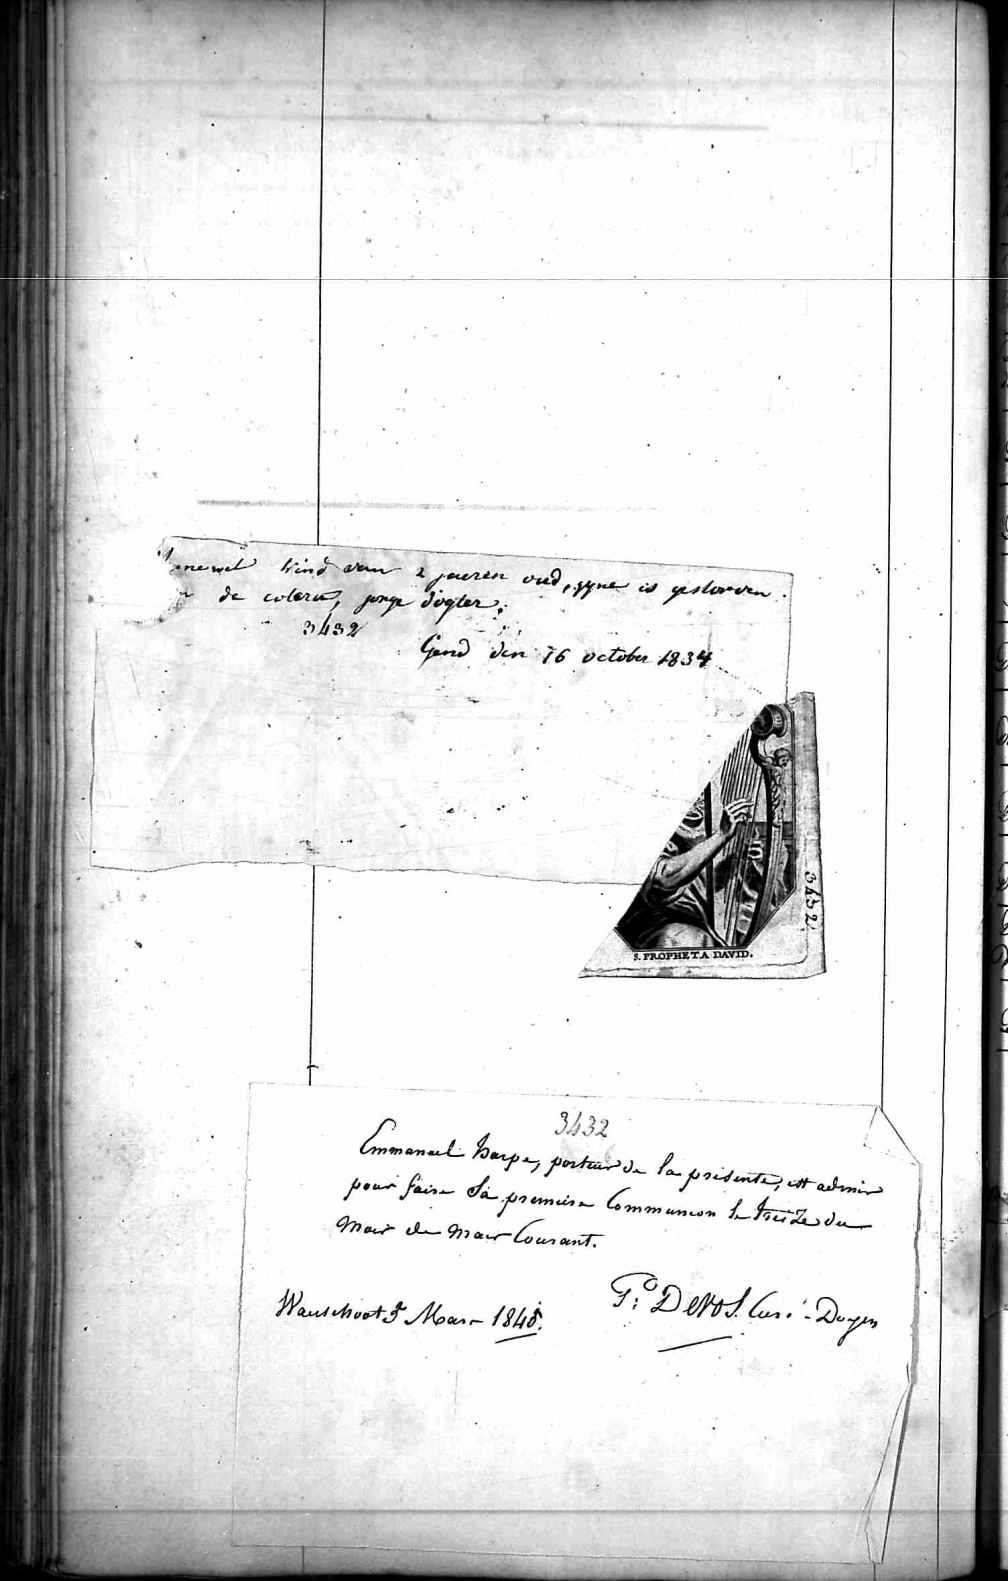 kind van 2 jaeren oud, zyne is gestorven
de colera, jonge dogter.
3432
Gend den 16 october 1834
3432
S. PROPHETA DAVID.
3432
Emmanuel harpe, porteur de la présente, est admis
pour faire Sa première Communion le treize du
Mois de Mars Courant.
Waerschoot 5 Mars 1845.
DeVos. Curé-Doyen